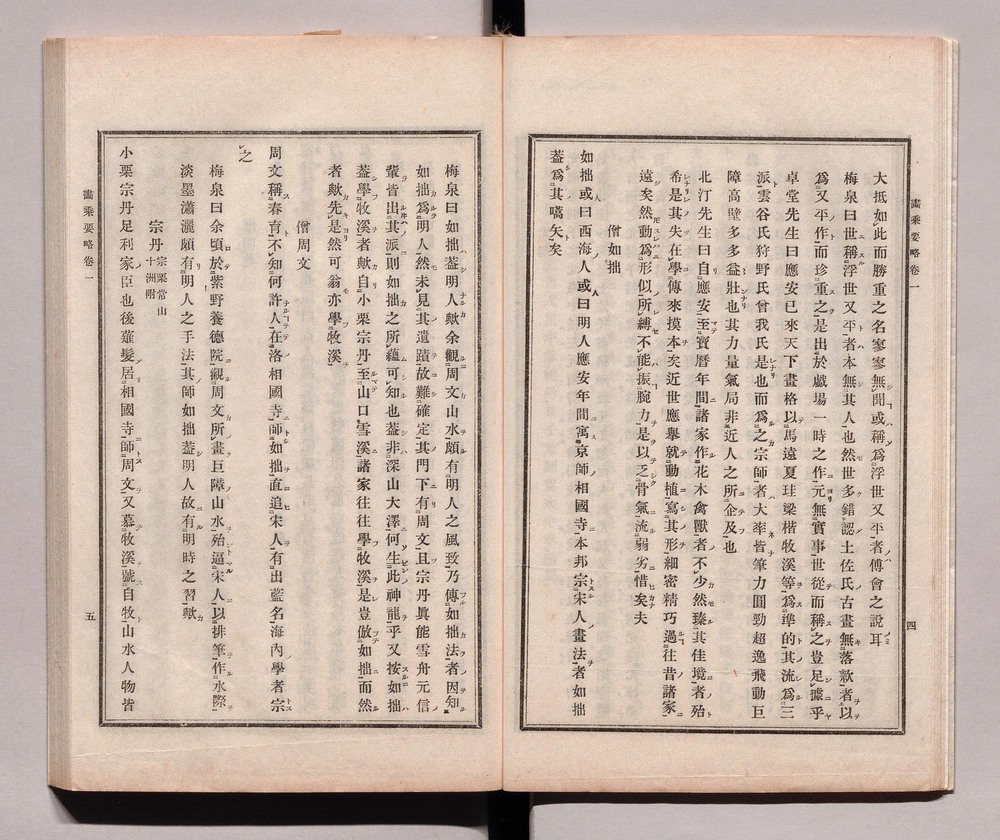 畫乘要略卷一
四
大抵如此而勝重之名寥寥無聞或稱爲浮世又平者傅會之說耳
梅泉曰世稱浮世又平者本無其人也然世多錯認土佐氏古畫無落款者以
爲又平作而珍重之是出於戲場一時之作元無實事世從而稱之豈足據乎
卓堂先生曰應安已來天下畫格以馬遠夏珪梁楷牧溪等爲準的其流爲三
派雲谷氏狩野氏曾我氏是也而爲之宗師者大率皆筆力圓勁超逸飛動巨
障高壁多多益壯也其力量氣局非近人之所企及也
北汀先生曰自應安至寶曆年間諸家作花木禽獸者不少然臻其佳境者殆
希是其失在學傳來摸本矣近世應舉就動植寫其形細密精巧過往昔諸家
遠矣然動爲形似所縛不能振腕力是以乏骨氣流弱劣惜矣夫
僧如拙
如拙或曰西海人或曰明人應安年間寓京師相國寺本邦宗宋人畫法者如拙
蓋爲其嚆矢矣
梅泉曰如拙蓋明人歟余觀周文山水頗有明人之風致乃傳如拙法者因知
如拙爲明人然未見其遺蹟故難確定其門下有周文且宗丹眞能雪舟元信
輩皆出其派則如拙之所蘊可知也蓋非深山大澤何生此神龍乎又按如拙
蓋學牧溪者歟自小栗宗丹至山口雪溪諸家往往學牧溪是豈倣如拙而然
者歟先是然可翁亦學牧溪
僧周文
周文稱春育不知何許人在洛相國寺師如拙直追宋人有出藍名海內學者宗
之
梅泉曰余頃於紫野養德院觀周文所畫巨障山水殆逼宋人以排筆作水際
淡墨瀟灑頗有明人之手法其師如拙蓋明人故有明時之習歟
宗丹 宗栗常山十洲附
小栗宗丹足利家臣也後薙髮居相國寺師周文又慕牧溪號自牧山水人物皆
畫乘要略卷一
五